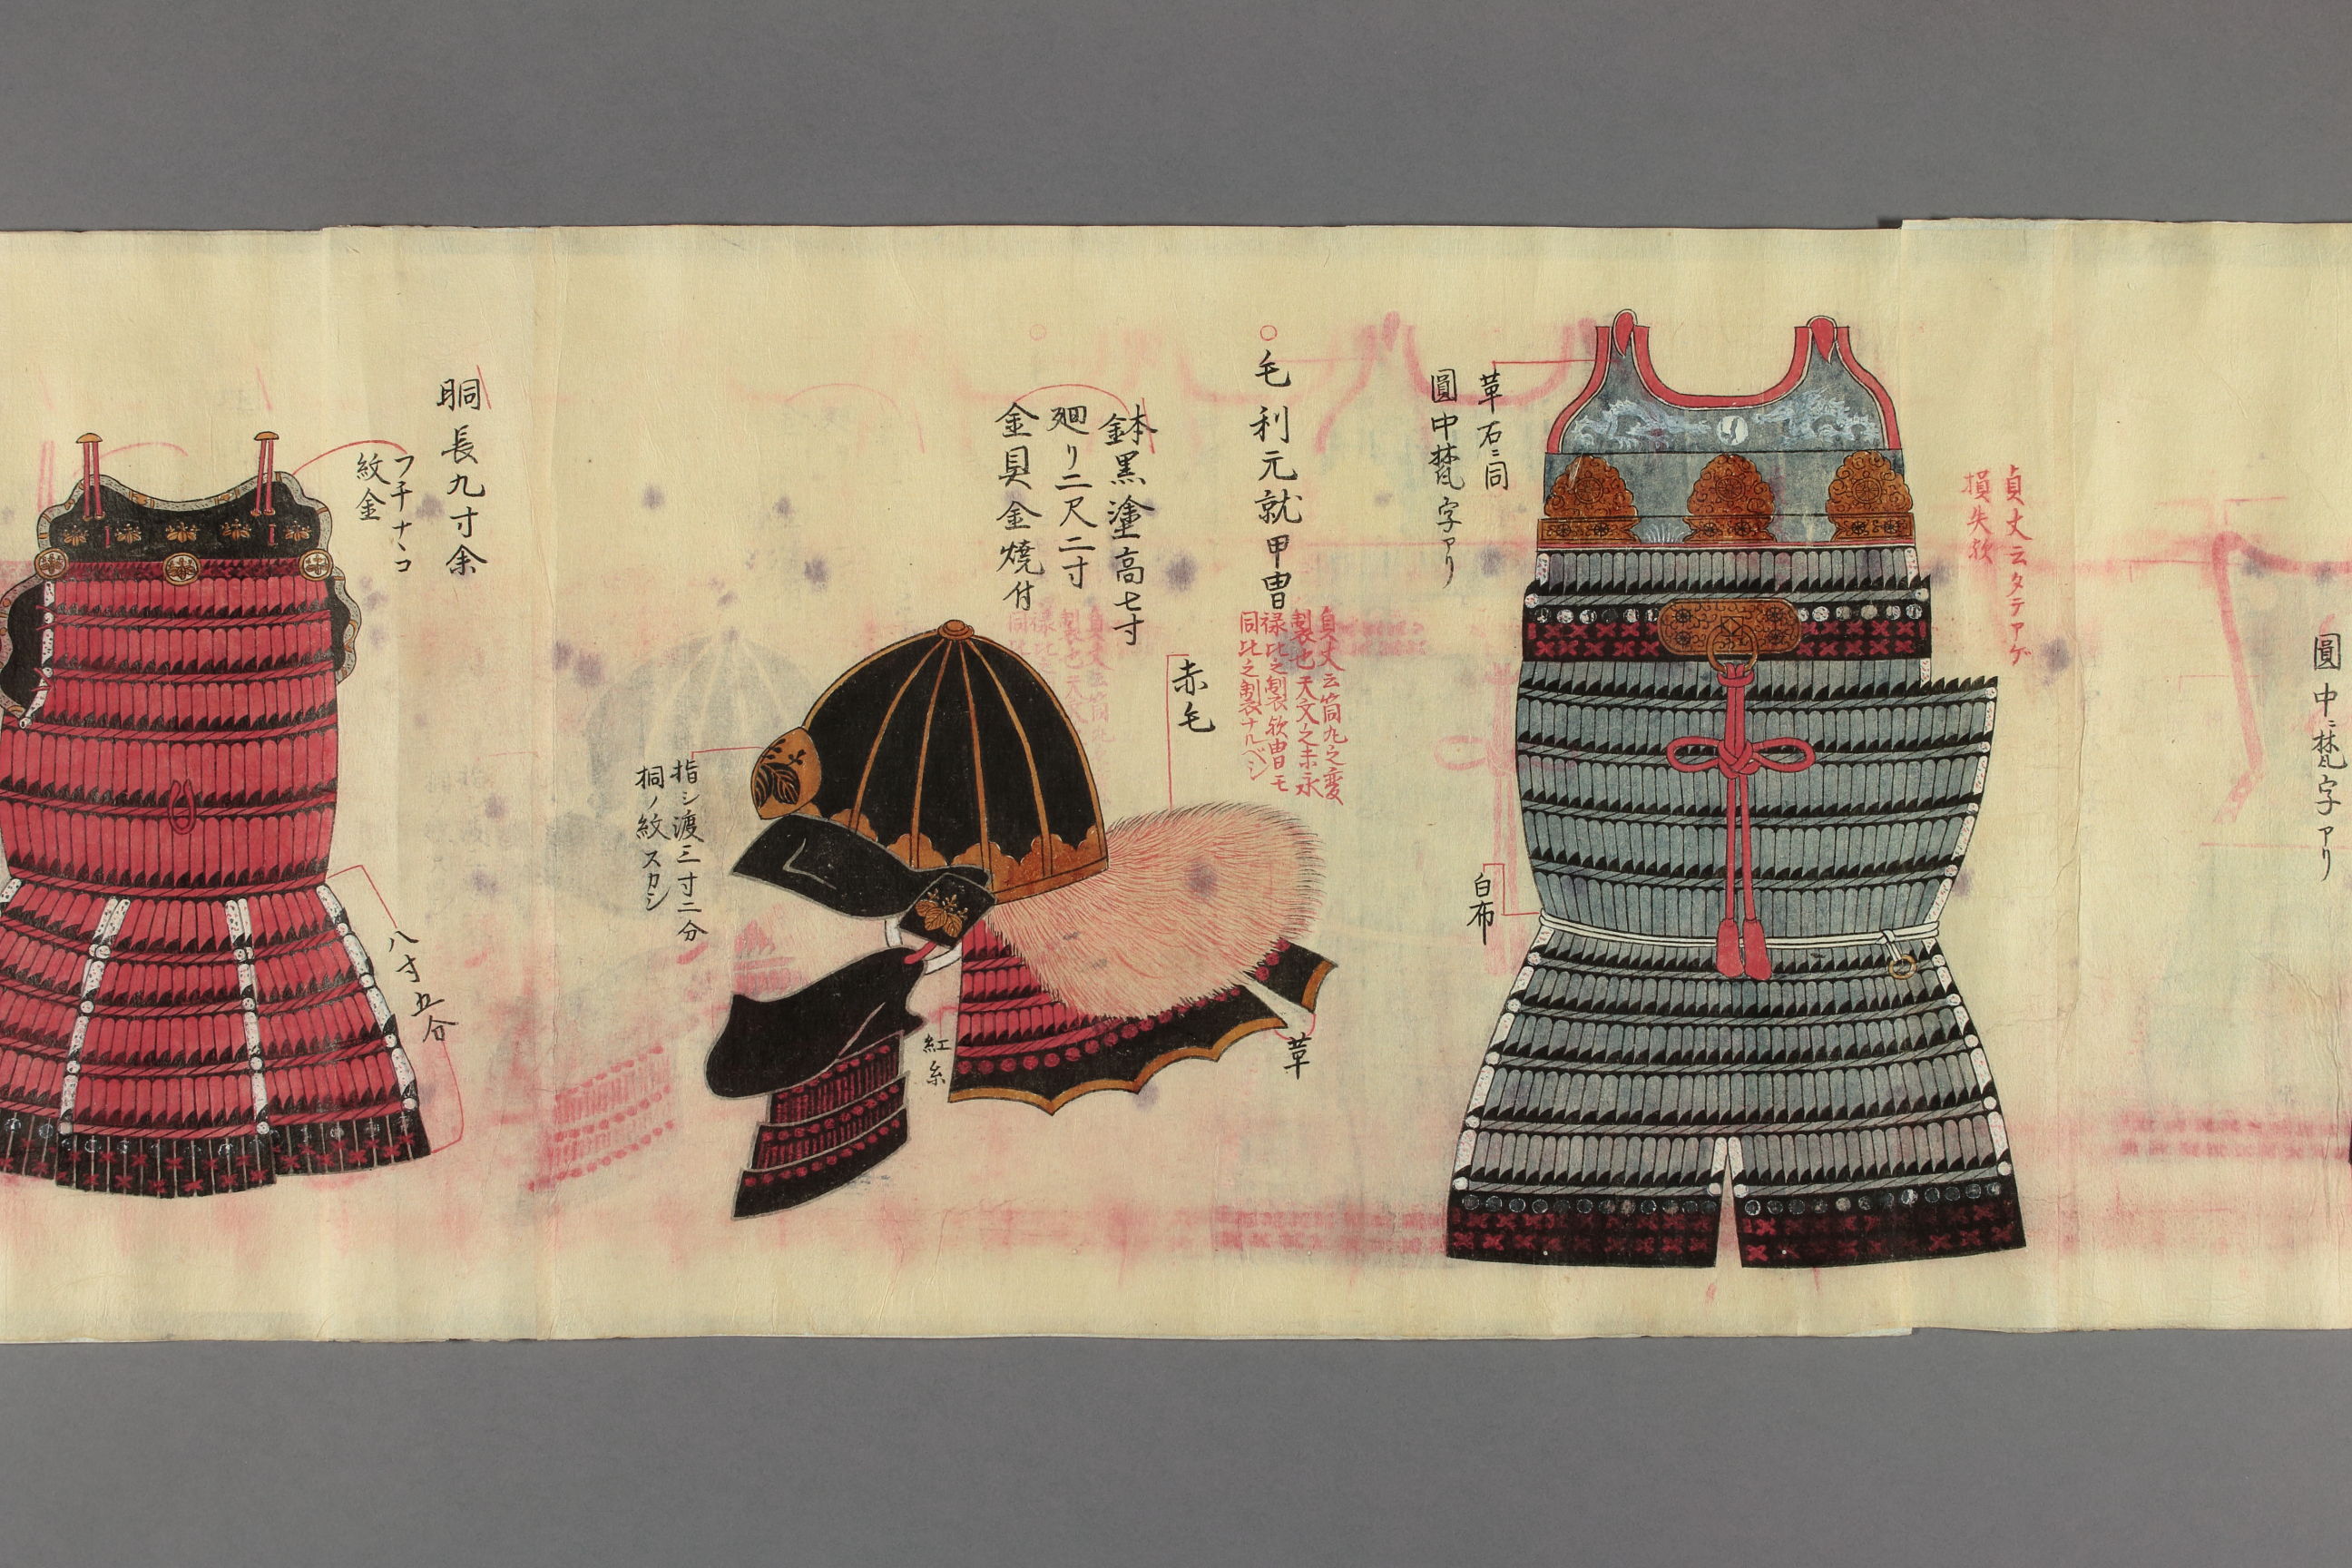 圓中ニ梵字アリ
貞丈云タテアゲ
損失欤
革右ニ同
圓中梵字アリ
白布
○毛利元就甲冑
貞丈云筒丸之変
製也天文之末永
禄比之製欤冑モ
同比之製ナルベシ
赤毛
革
鉢黒塗高七寸
廻リ二尺二寸
金具金焼付
紅糸
指シ渡三寸二分
桐ノ紋スカシ
胴長九寸余
フチナヽコ
紋金
八寸五分